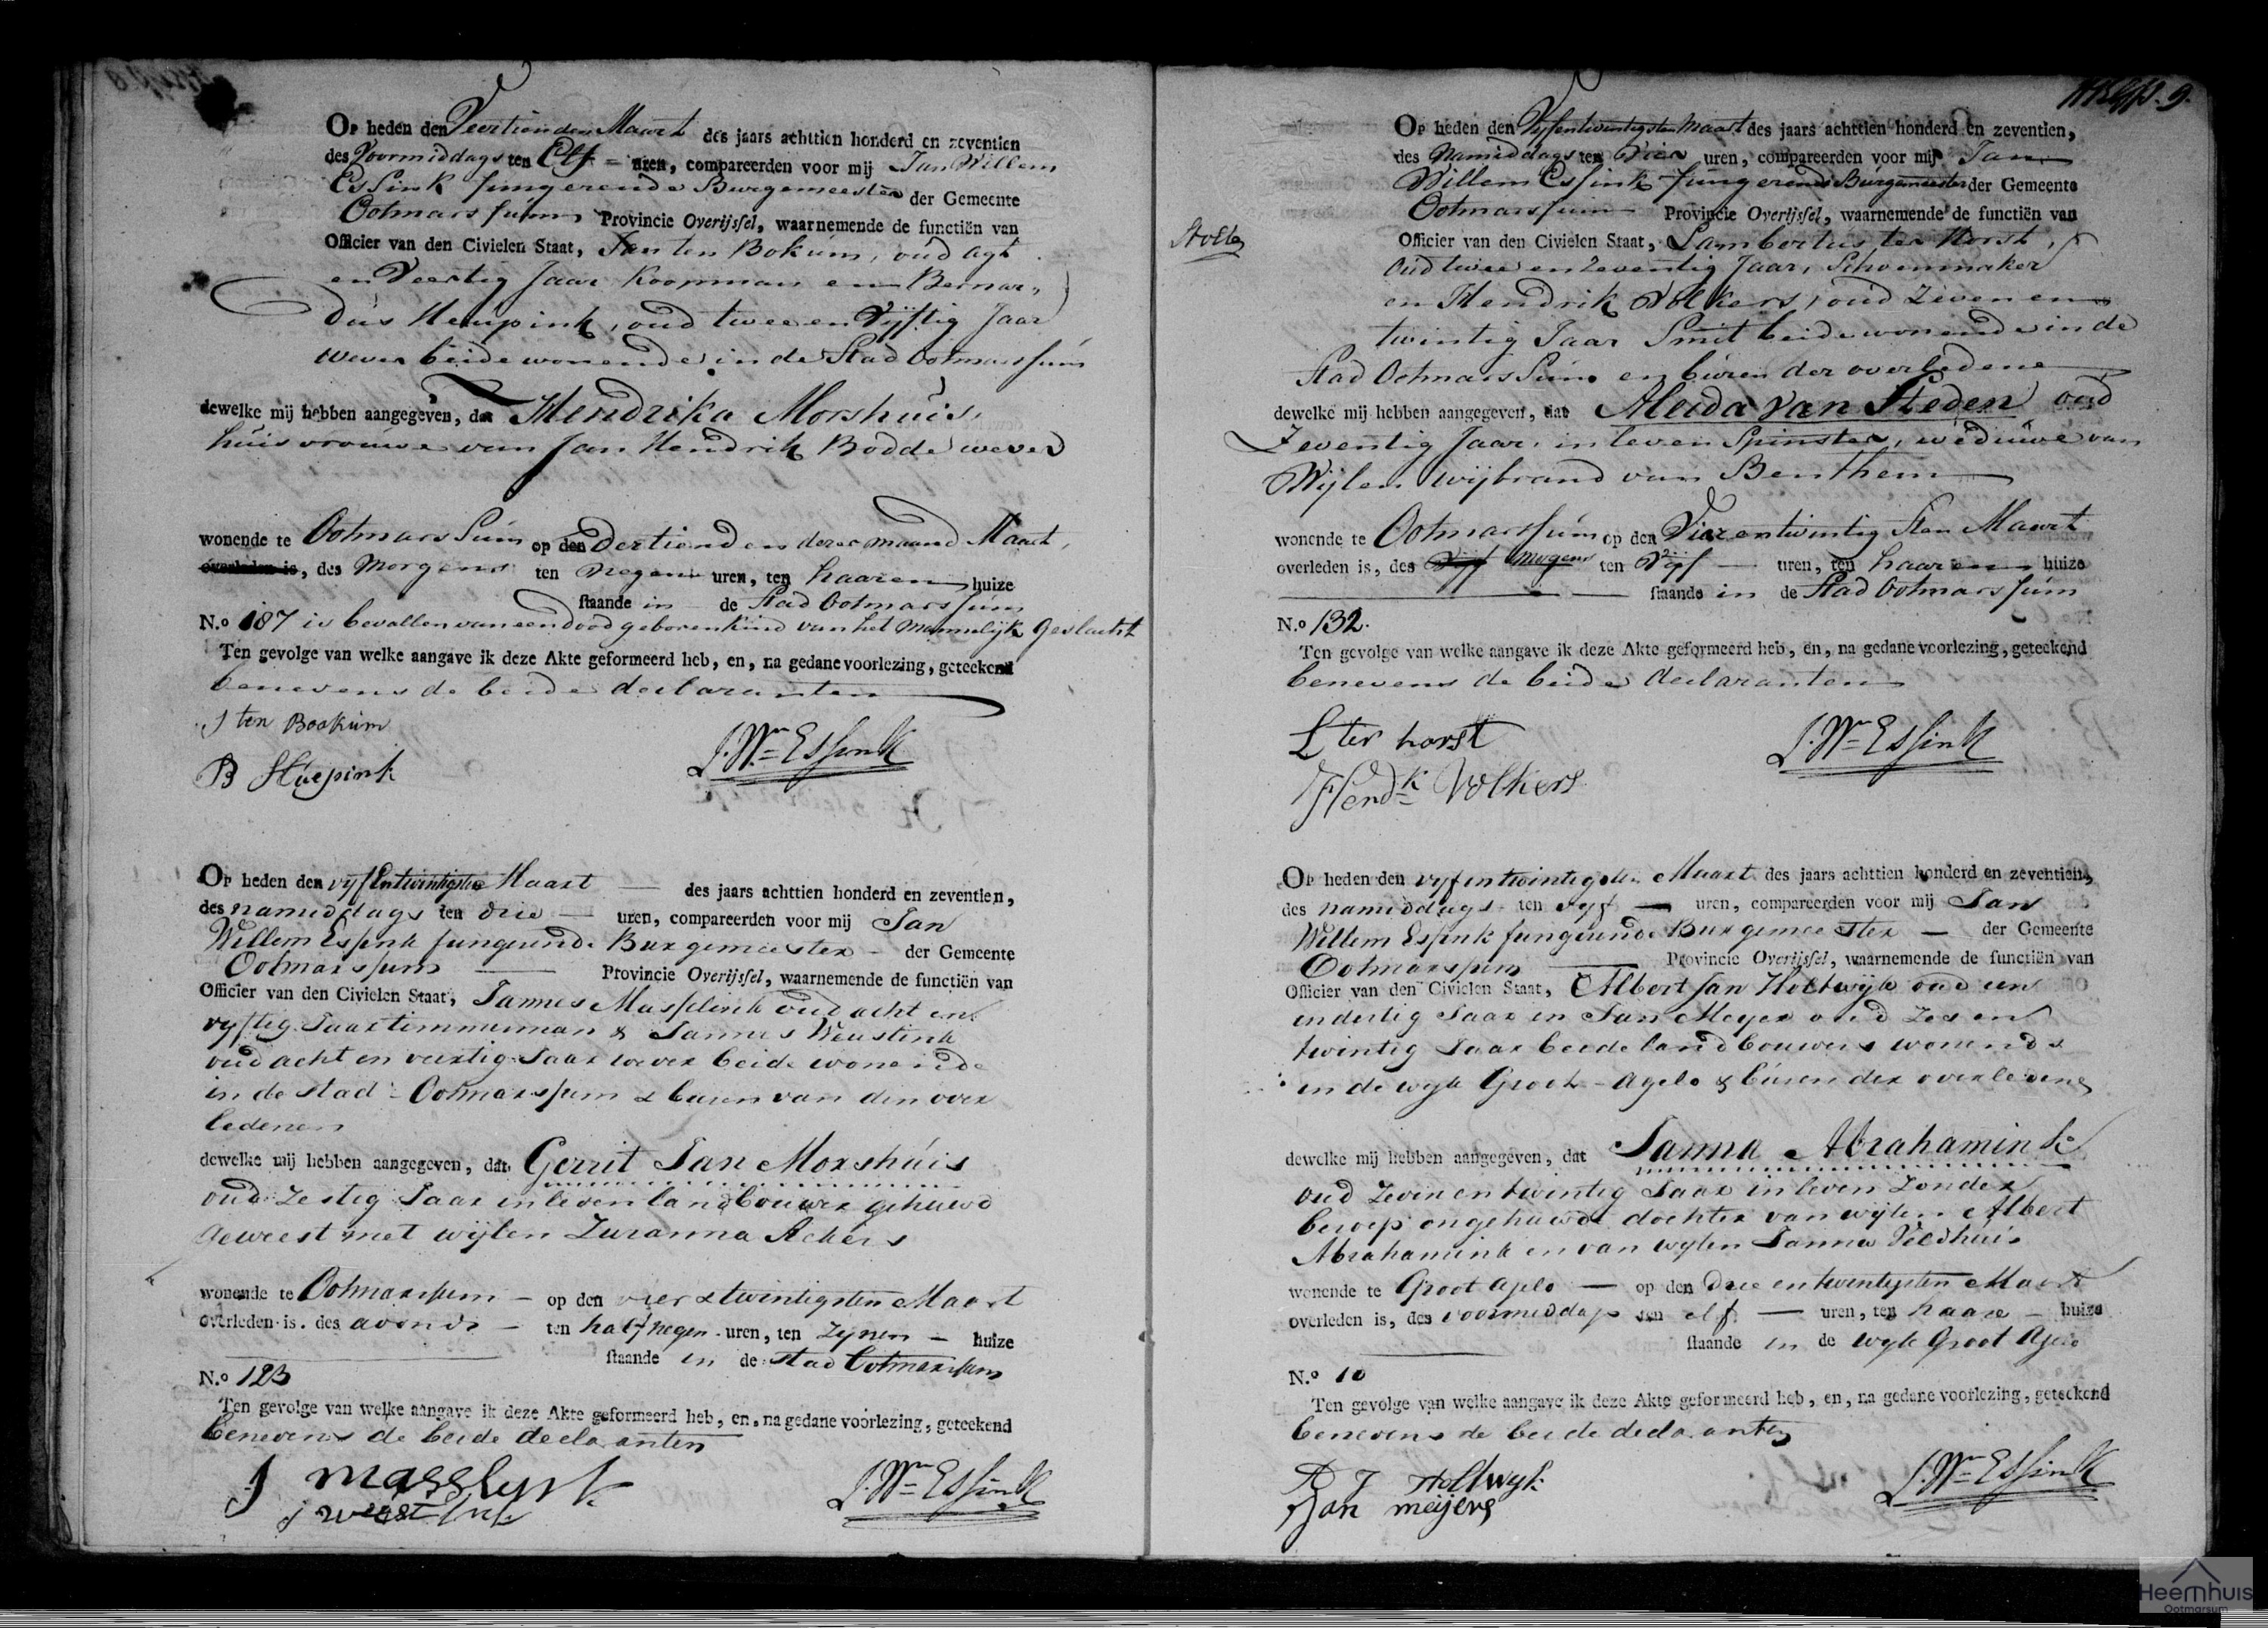 Op heden den Veertienden Maart des jaars achttien honderd en zeventien
des Voormiddags ten Elf uren, compareerden voor mij Jan Willem
Essink fungerende Burgemeester der Gemeente
Ootmarssum Provincie Overijssel, waarnemende de functiën van
Officier van den Civielen Staat, Jan ten Bokum, oud agt
en Veertig Jaar Koopman en Bernar„
dus Heupink, oud twee en Vijftig Jaar
wever beide wonende in de Stad Ootmarssum
dewelke mij hebben aangegeven, dat Hendrika Morshuis,
huisvrouwe van Jan Hendrik Bodde wever
wonende te Ootmarssum op den Dertienden dezer maand Maart,
overleden is, des Morgens ten Negen uren, ten haaren huize
staande in de Stad Ootmarssum
N.o 187 is bevallen van een dood geboren kind van het Mannelijk Geslacht
Ten gevolge van welke aangave ik deze Akte geformeerd heb, en, na gedane voorlezing, geteekend
benevens de beide declaranten
J ten Bookum
J. Wm Essink
B Hüepink
Op heden den vyfentwintigsten Maart des jaars achttien honderd en zeventien,
des namiddags ten drie uren, compareerden voor mij Jan
Willem Essink fungerende Burgemeester der Gemeente
Ootmarssum Provincie Overijssel, waarnemende de functiën van
Officier van den Civielen Staat, Jannes Masselink oud acht en
vyftig Jaar timmerman & Jannes Weustink
oud acht en veertig Jaar wever beide wonende
in de stad Ootmarssum & buren van den over
ledenen
dewelke mij hebben aangegeven, dat Gerrit Jan Morshuis
oud zestig Jaar in leven landbouwer gehuwd
geweest met wijlen Zuranna Ackers
wonende te Ootmarssum op den vier & twintigsten Maart
overleden is. des avonds ten half negen uren, ten zynen huize
staande in de stad Ootmarssum
N.o 123
Ten gevolge van welke aangave ik deze Akte geformeerd heb, en, na gedane voorlezing, geteekend
benevens de beide declaranten
J masslynk
J. Wm Essink
Op heden den Vyfentwintigsten Maart des jaars achttien honderd en zeventien,
des Namiddags ten Vier uren, compareerden voor mij Jan
Willem Essink fungerende Burgemeester der Gemeente
Ootmarssum Provincie Overijssel, waarnemende de functiën van
Officier van den Civielen Staat, Lambertus ter Horst,
Oud twee en Zeventig Jaar, Schoenmaker
en Hendrik Volkers, oud Zeven en
twintig Jaar Smit beide wonende in de
Stad Ootmarssum en buren der overledene
dewelke mij hebben aangegeven, dat Aleida van Steden oud
Zeventig Jaar, in leven Spinster, weduwe van
Wijlen Wijbrand van Benthem
wonende te Ootmarssum op den Vier entwintig Sten Maart
overleden is, des Vyf Morgens ten Vijf uren, ten haaren huize
staande in de Stad Ootmarssum
N.o 132.
Ten gevolge van welke aangave ik deze Akte geformeerd heb, en, na gedane voorlezing, geteekend
benevens de beide declaranten
L ter horst
J. Wm Essink
Hendk Volkers
Op heden den vyfentwintigsten Maart des jaars achttien honderd en zeventien,
des namiddags ten vyf uren, compareerden voor mij Jan
Willem Essink fungerende Burgemeester der Gemeente
Ootmarssum Provincie Overijssel, waarnemende de functiën van
Officier van den Civielen Staat, Albert Jan Holtwijk oud een
en dertig Jaar en Jan Meyer oud zes en
twintig Jaar beide landbouwers wonende
in de wyk Groot-Agelo & buren der overledene
dewelke mij hebben aangegeven, dat Janna Abrahamink
oud zeven en twintig Jaar in leven zonder
beroep ongehuwde dochter van wijlen Albert
Abrahamink en van wylen Janna Veldhuis
wonende te Groot Agelo op den drie en twintigsten Maart
overleden is, des voormiddags ten elf uren, ten haare huize
staande in de wyk Groot Agelo
N.o 10
Ten gevolge van welke aangave ik deze Akte geformeerd heb, en, na gedane voorlezing, geteekend
benevens de beide declaranten
A J Holtwyk
J. Wm Essink
Jan meijers
Heemhuis
Ootmarsum